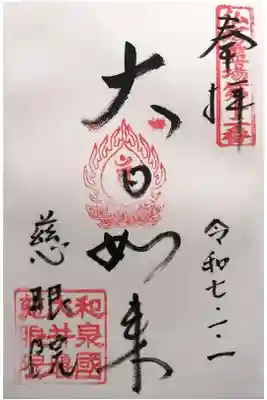 奉拝
令和七・一・一
大日如来
慈眼院
和泉國
大井関
慈眼院